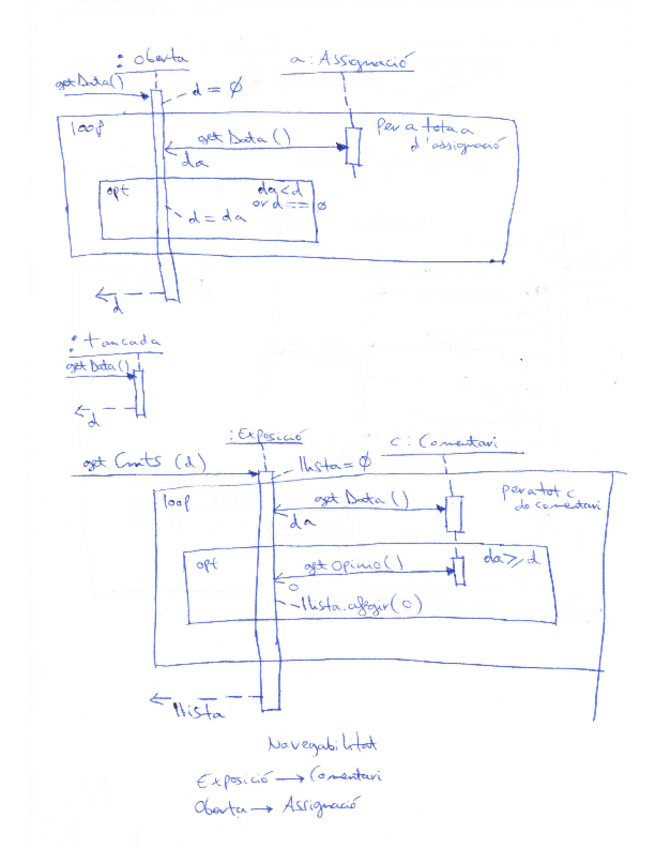 : Oberta
a : Assignació
getData()
d = Ø
loop
Per a tota a
d'assignació
getData()
da
opt
da < d
or d == Ø
d = da
d
: tancada
getData()
d
: Exposició
c : Comentari
get Cmts (d)
llista = Ø
loop
per a tot c
de comentari
getData()
da
opt
da ≥ d
getOpinio()
o
llista.afegir(o)
llista
Navegabilitat
Exposició → Comentari
Oberta → Assignació